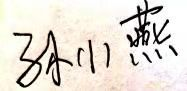 孙小燕